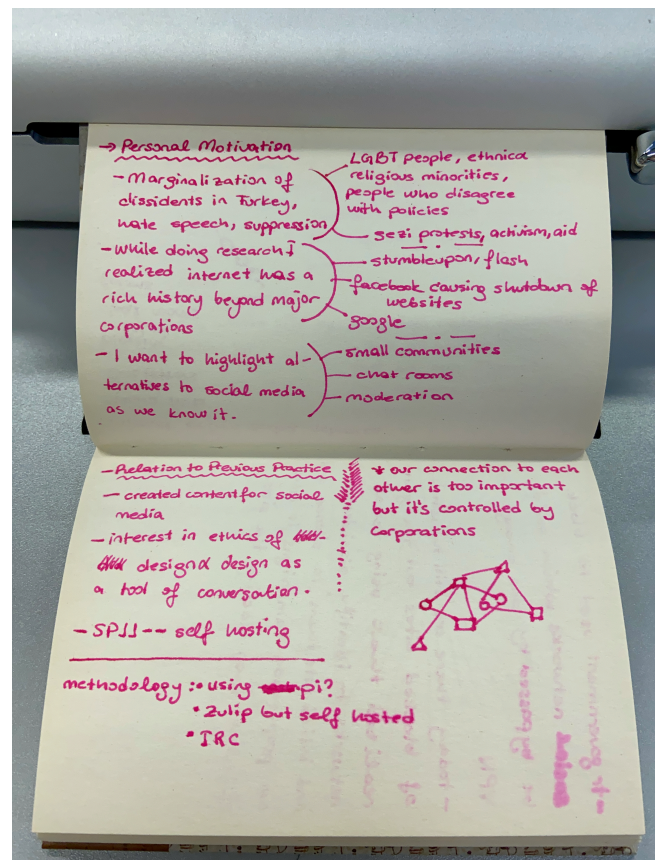 → Personal Motivation
- Marginalization of
dissidents in Turkey,
hate speech, suppression
LGBT people, ethnical
religious minorities,
people who disagree
with policies
gezi protests, activism, aid
- While doing research I
realized internet has a
rich history beyond major
corporations
stumbleupon, flash
facebook causing shutdown of
websites
google
- I want to highlight al-
ternatives to social media
as we know it.
small communities
chat rooms
moderation
- Relation to Previous Practice
- created content for social
media
- interest in ethics of
design & design as
a tool of conversation.
- SP11 -- self hosting
* our connection to each
other is too important
but it's controlled by
corporations
methodology : • using pi?
• Zulip but self hosted
• IRC